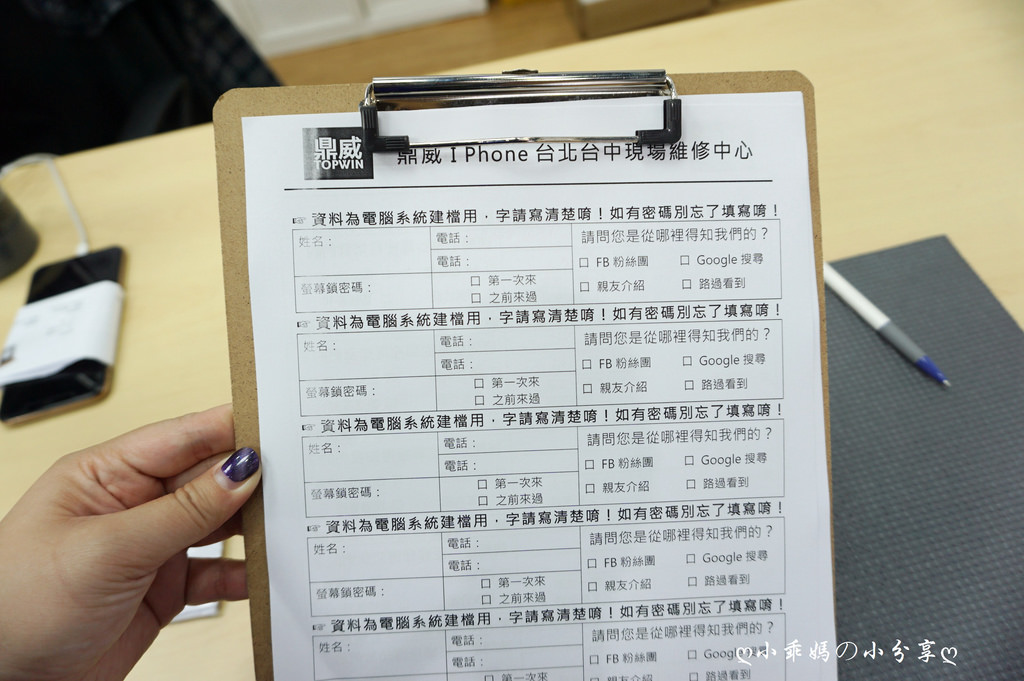 鼎威
TOPWIN
鼎威 I Phone 台北台中現場維修中心
☞ 資料為電腦系統建檔用，字請寫清楚唷！如有密碼別忘了填寫唷！
姓名： 電話： 請問您是從哪裡得知我們的？
電話： □ FB 粉絲團 □ Google 搜尋
螢幕鎖密碼： □ 第一次來 □ 親友介紹 □ 路過看到
□ 之前來過
☞ 資料為電腦系統建檔用，字請寫清楚唷！如有密碼別忘了填寫唷！
姓名： 電話： 請問您是從哪裡得知我們的？
電話： □ FB 粉絲團 □ Google 搜尋
螢幕鎖密碼： □ 第一次來 □ 親友介紹 □ 路過看到
□ 之前來過
☞ 資料為電腦系統建檔用，字請寫清楚唷！如有密碼別忘了填寫唷！
姓名： 電話： 請問您是從哪裡得知我們的？
電話： □ FB 粉絲團 □ Google 搜尋
螢幕鎖密碼： □ 第一次來 □ 親友介紹 □ 路過看到
□ 之前來過
☞ 資料為電腦系統建檔用，字請寫清楚唷！如有密碼別忘了填寫唷！
姓名： 電話： 請問您是從哪裡得知我們的？
電話： □ FB 粉絲團 □ Google 搜尋
螢幕鎖密碼： □ 第一次來 □ 親友介紹 □ 路過看到
□ 之前來過
☞ 資料為電腦系統建檔用，字請寫清楚唷！如有密碼別忘了填寫唷！
姓名： 電話： 請問您是從哪裡得知我們的？
電話： □ FB 粉絲團 □ Google
□ 第一次來 □ 親友介紹 □ 路過看到
ღ小乖媽の小分享ღ